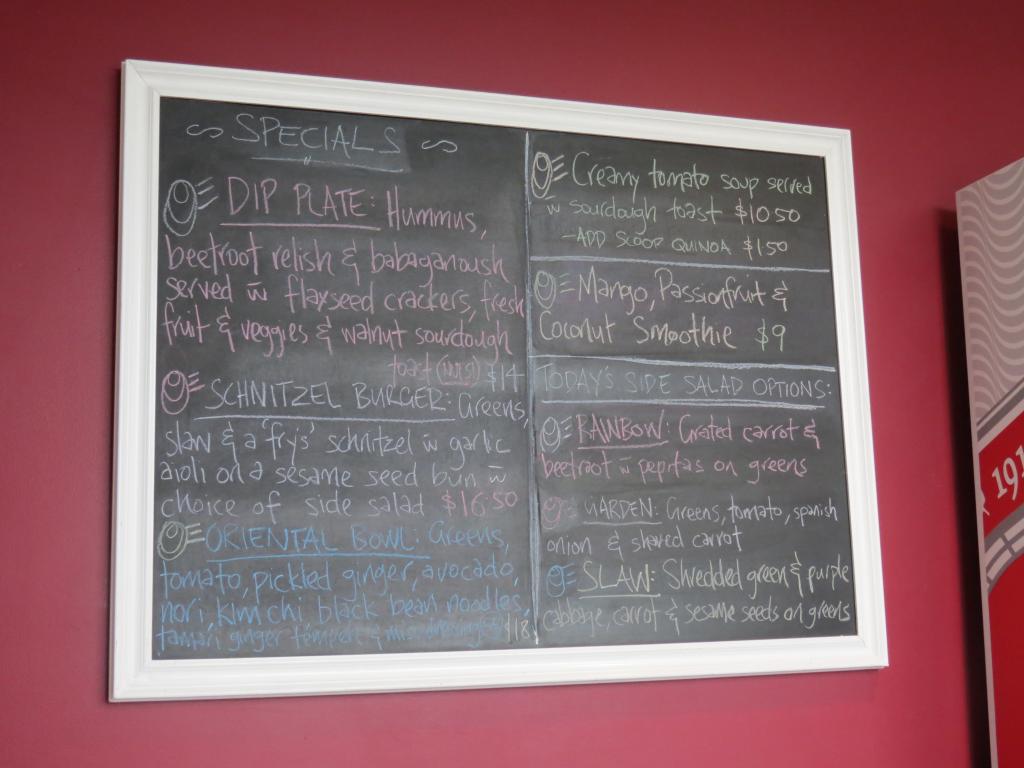 SPECIALS
DIP PLATE: Hummus,
beetroot relish & babaganoush
served w̄ flaxseed crackers, fresh
fruit & veggies & walnut sourdough
toast $14
SCHNITZEL BURGER: Greens,
slaw & a 'fry's' schnitzel w̄ garlic
aioli on a sesame seed bun w̄
choice of side salad $16.50
ORIENTAL BOWL: Greens,
tomato, pickled ginger, avocado,
nori, kimchi black bean noodles,
tamari ginger tempeh & miso dressing $18
Creamy tomato soup served
w̄ sourdough toast $10 50
-ADD SCOOP QUINOA $1 50
Mango, Passionfruit &
Coconut Smoothie $9
TODAY'S SIDE SALAD OPTIONS:
RAINBOW: Grated carrot &
beetroot w̄ pepitas on greens
GARDEN: Greens, tomato, spanish
onion & shaved carrot
SLAW: Shredded green & purple
cabbage, carrot & sesame seeds on greens
191